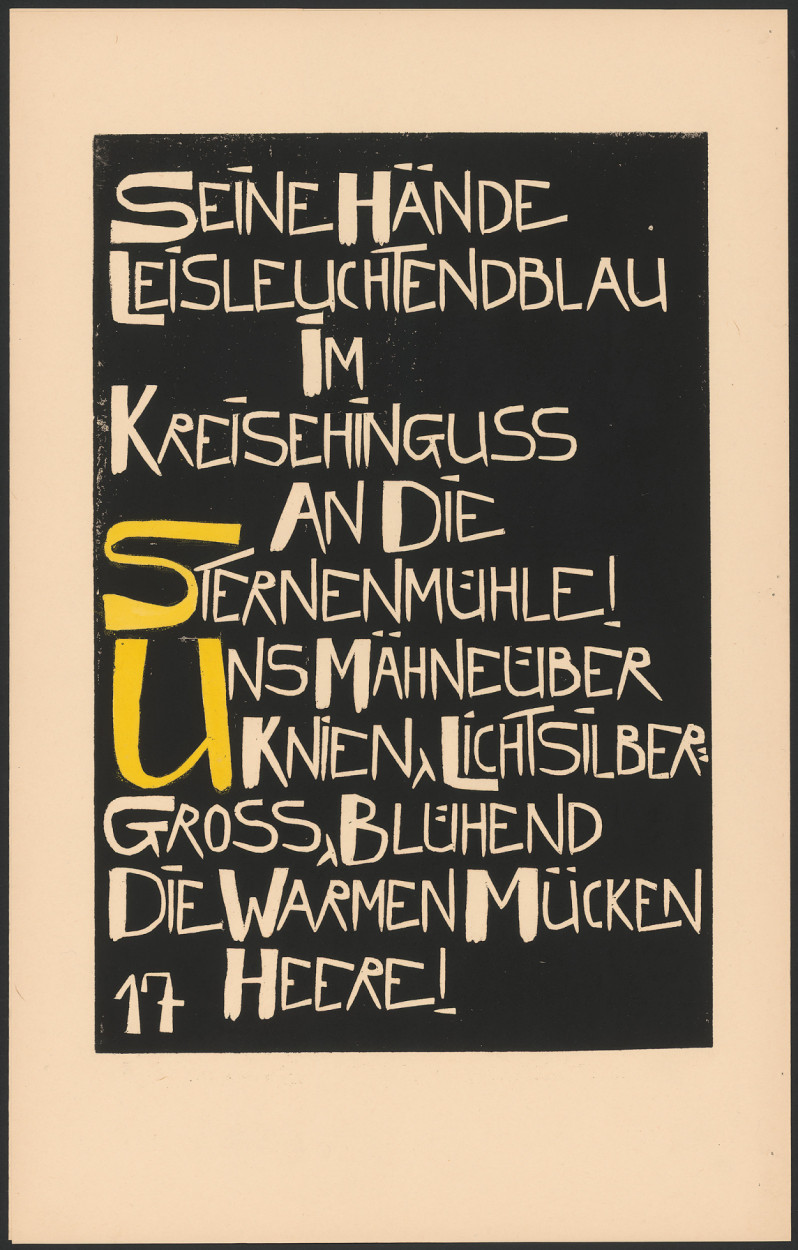 SEINE HÄNDE
LEISLEUCHTENDBLAU
IM
KREISEHINGUSS
AN DIE
STERNENMÜHLE!
UNS MÄHNEÜBER
KNIEN, LICHTSILBER-
GROSS, BLÜHEND
DIE WARMEN MÜCKEN
HEERE!
17